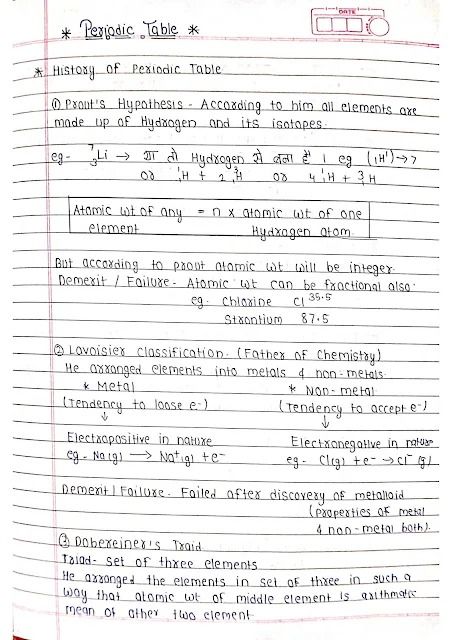 DATE
* Periodic Table *
* History of Periodic Table
① Prout's Hypothesis - According to him all elements are
made up of Hydrogen and its isotopes.
eg- ⁷₃Li → या तो Hydrogen से बना है । eg (₁H¹)→7
or ¹₁H + 2 ³₁H or 4 ¹₁H + ³₁H
Atomic wt of any = n x atomic wt of one
element Hydrogen atom.
But according to prout atomic wt will be integer.
Demerit / Failure - Atomic wt can be fractional also.
eg. Chlorine Cl 35.5
Strontium 87.5
② Lavoisier classification. (Father of Chemistry)
He arranged elements into metals & non-metals.
* Metal * Non-metal
(Tendency to loose e-) (Tendency to accept e-)
↓ ↓
Electropositive in nature Electronegative in nature
eg - Na(g) → Na⁺(g) + e⁻ eg - Cl(g) + e⁻ → Cl⁻(g)
Demerit / Failure. Failed after discovery of metalloid
(properties of metal
& non-metal both).
③ Dobereiner's Traid
Triad- set of three elements
He arranged the elements in set of three in such a
way that atomic wt of middle element is arithmatic
mean of other two element.